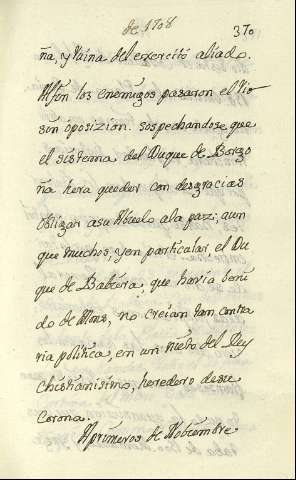 de 1708
370
ña, y ruina del exercito aliado.
Alfin los enemigos pasaron el rio
sin oposizion. sospechandose que
el sistema del Duque de Borgo
ña hera querer con desgracias
oblizar asu Abuelo ala paz; aun
que muchos, y en particular el Du
que de Babiera, que havia beni
do de Mons, no creian tan contra
ria politica, en un nieto del Rey
christianisimo, heredero desu
corona.
Aprimeros de Nobiembre